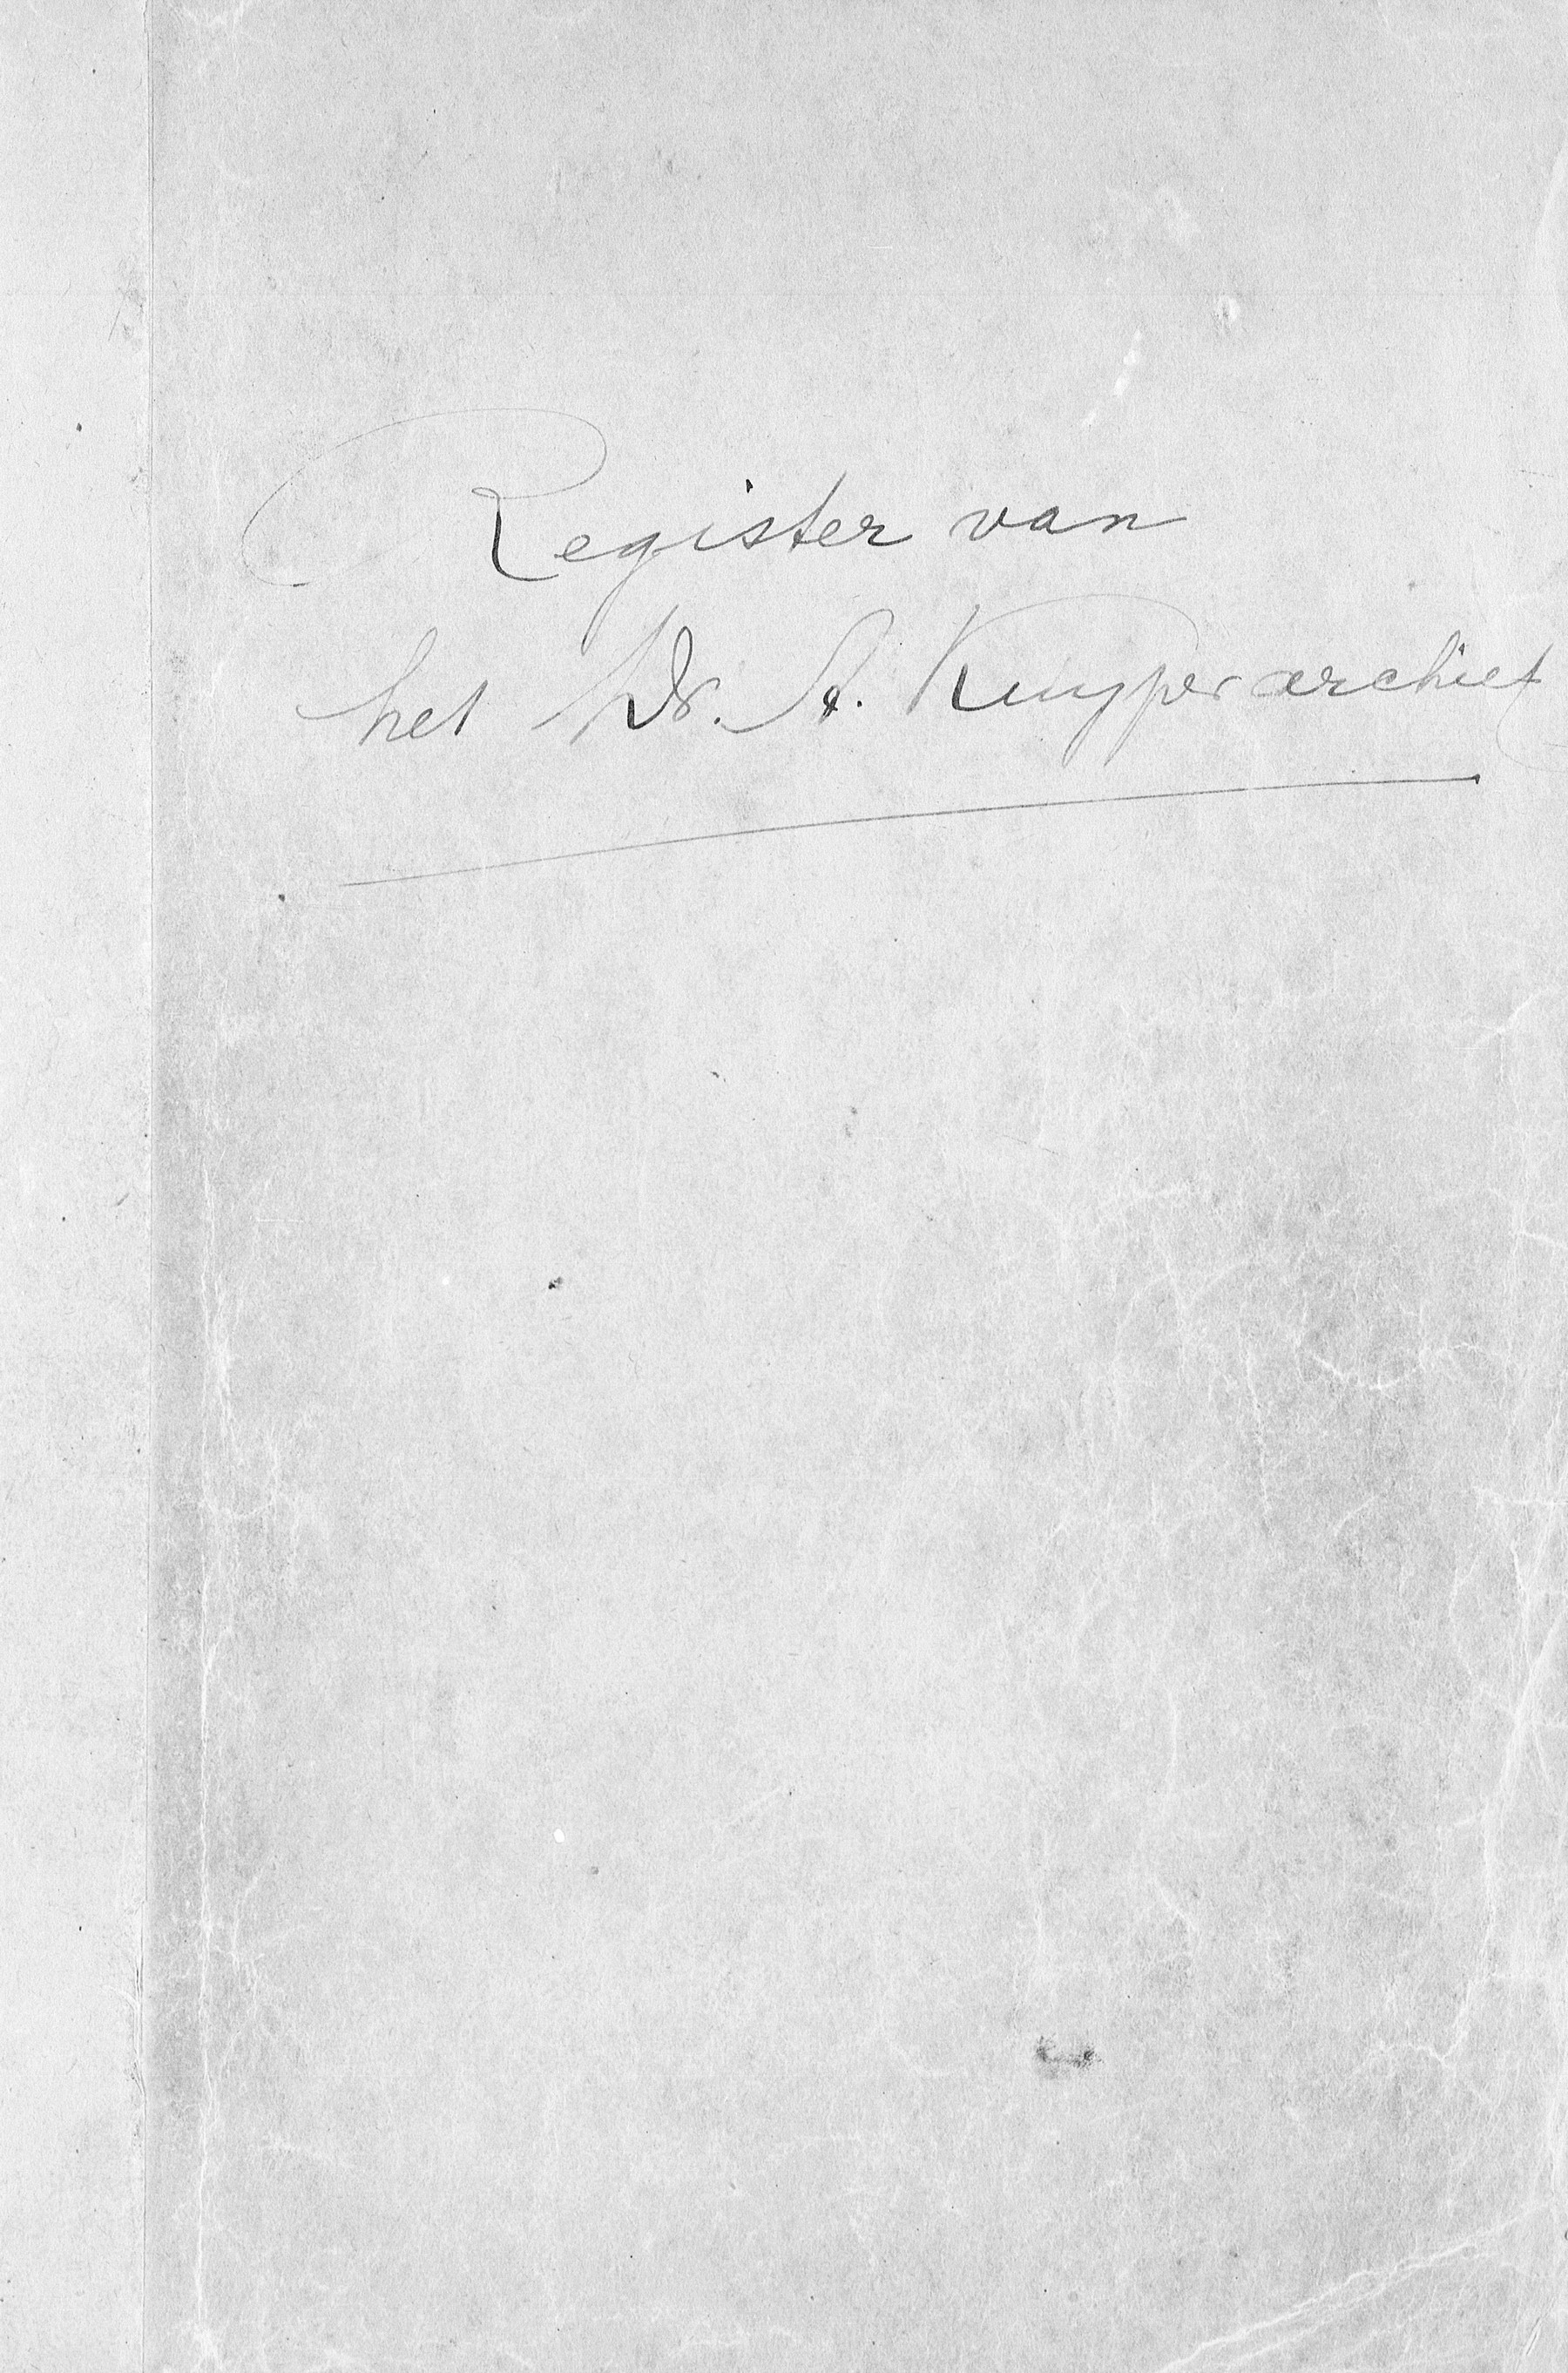 Register van
het Dr. A. Kuyper archief